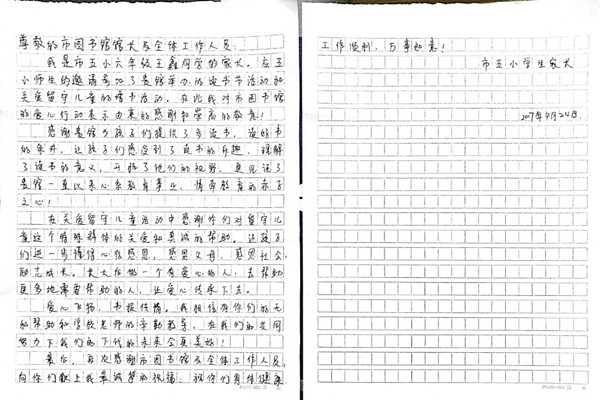 尊敬的市图书馆馆长与全体工作人员:
我是市五小六年级王鑫同学的家长。应五
小师生的邀请参加了贵馆举办的读书节活动和
关爱留守儿童的赠书活动。在此我对市图书馆
的爱心行动表示由衷的感谢和崇高的敬意!
感谢贵馆为孩子们提供了多读书、读好书
的条件,让孩子们感受到了读书的乐趣,理解
了读书的意义,开拓了他们的视野,更见证了
贵馆一直以来心系教育事业,情牵教育的赤子
之心!
在关爱留守儿童活动中感谢你们对留守儿
童这个特殊群体的关爱和真诚的帮助。让孩子
们进一步懂得心存感恩,感恩父母,感恩社会,
励志成长。长大后做一个有爱心的人,去帮助
更多地需要帮助的人,让爱心传承下去。
爱心飞扬,书报传情。我相信有你们的无
私帮助和学校老师的辛勤教导,在我们的共同
努力下我们的下一代的未来会更美好!
最后,再次感谢市图书馆及全体工作人员,
向你们献上我最诚挚的祝福:祝你们身体健康
工作顺利,万事如意!
市五小学生家长
2017年4月24日